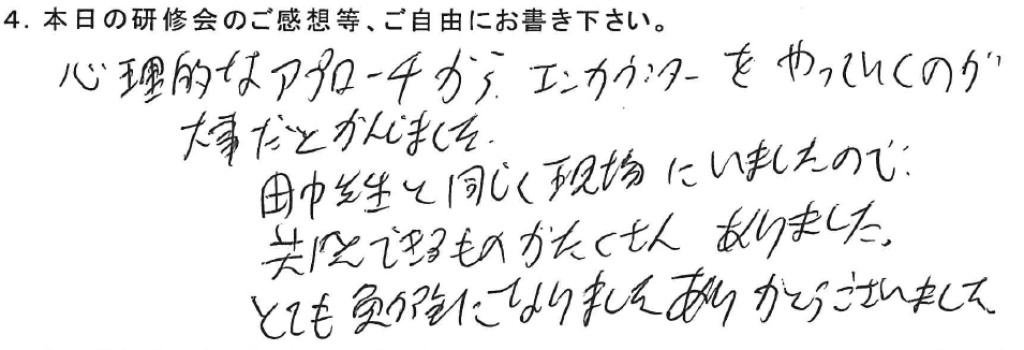 4. 本日の研修会のご感想等、ご自由にお書き下さい。
心理的なアプローチから エンカウンターを やっていくのが
大事だとかんじました.
田中先生と同じく現場にいましたので、
共感できるものがたくさん ありました。
とても勉強になりました ありがとうございました